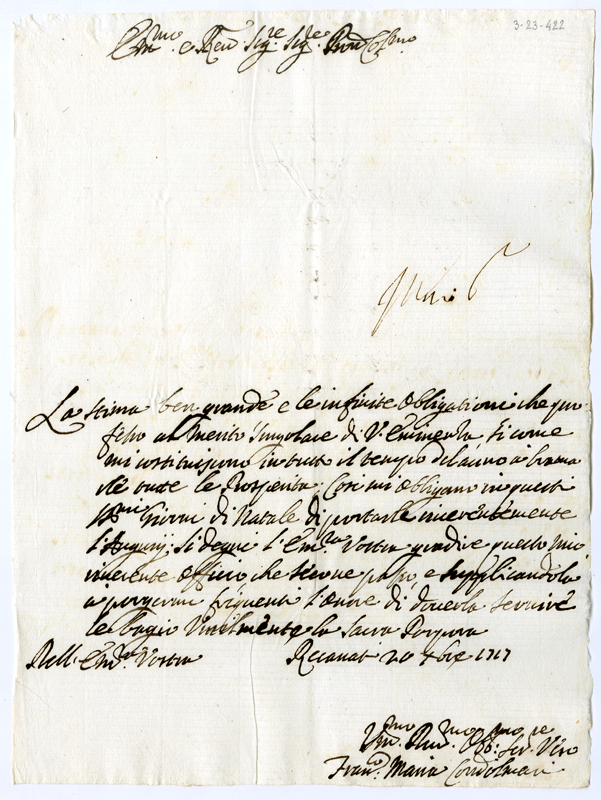 3-23-422
Em.mo e Reu. Sig.re Sig.re Pron Col.mo
La stima ben grande e le infinite Obbligationi che pro-
fesso al Merito singolare di V. Eminenza si come
mi costituiscono in tutto il tempo del anno a brama
rle tutte le Prosperità, Cosi mi Obbligano in questi
S.mi Giorni di Natale di portarle riverentemente
l'Augurij; Si degni l'Em.za Vostra gradire questo mio
riverente Officio che seco ne passo, e supplicandola
a porgermi frequenti l'onore di doverla servire
le bagio Umilmente la Sacra Porpora
Dell. Em.za Vostra Recanati 20 Xbre 1717
Um.mo Deu.mo Obb.mo Ser.re Vero
Fran.co Maria Condolmari